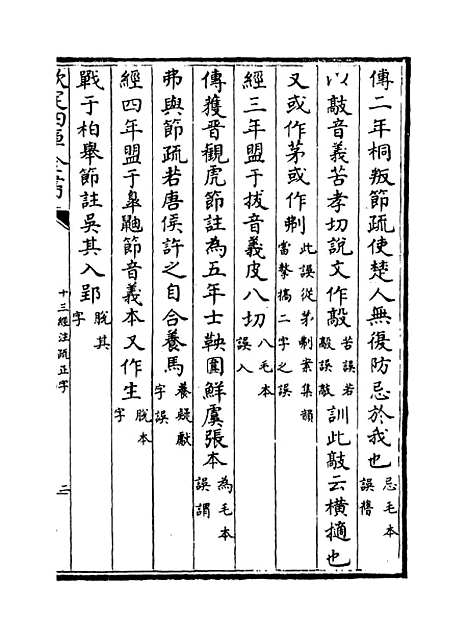 傳二年桐叛節疏使楚人無復防忌於我也忌毛本誤㬳
以敲音義苦孝切說文作敲苦誤若敲誤敵訓此敲云橫擿也
又或作茅或作剃此誤從茅剃案集韻當擊搞二字之誤
經三年盟于拔音義皮八切八毛本誤入
傳獲晉觀虎節註為五年士鞅圍鮮虞張本為毛本誤謂
弗與節疏若唐侯許之自合養馬養疑獻字誤
經四年盟于皐鼬節音義本又作生脫本字
戰于柏舉節註吳其入郢脫其字
欽定四庫全書
十三經注疏正字
三